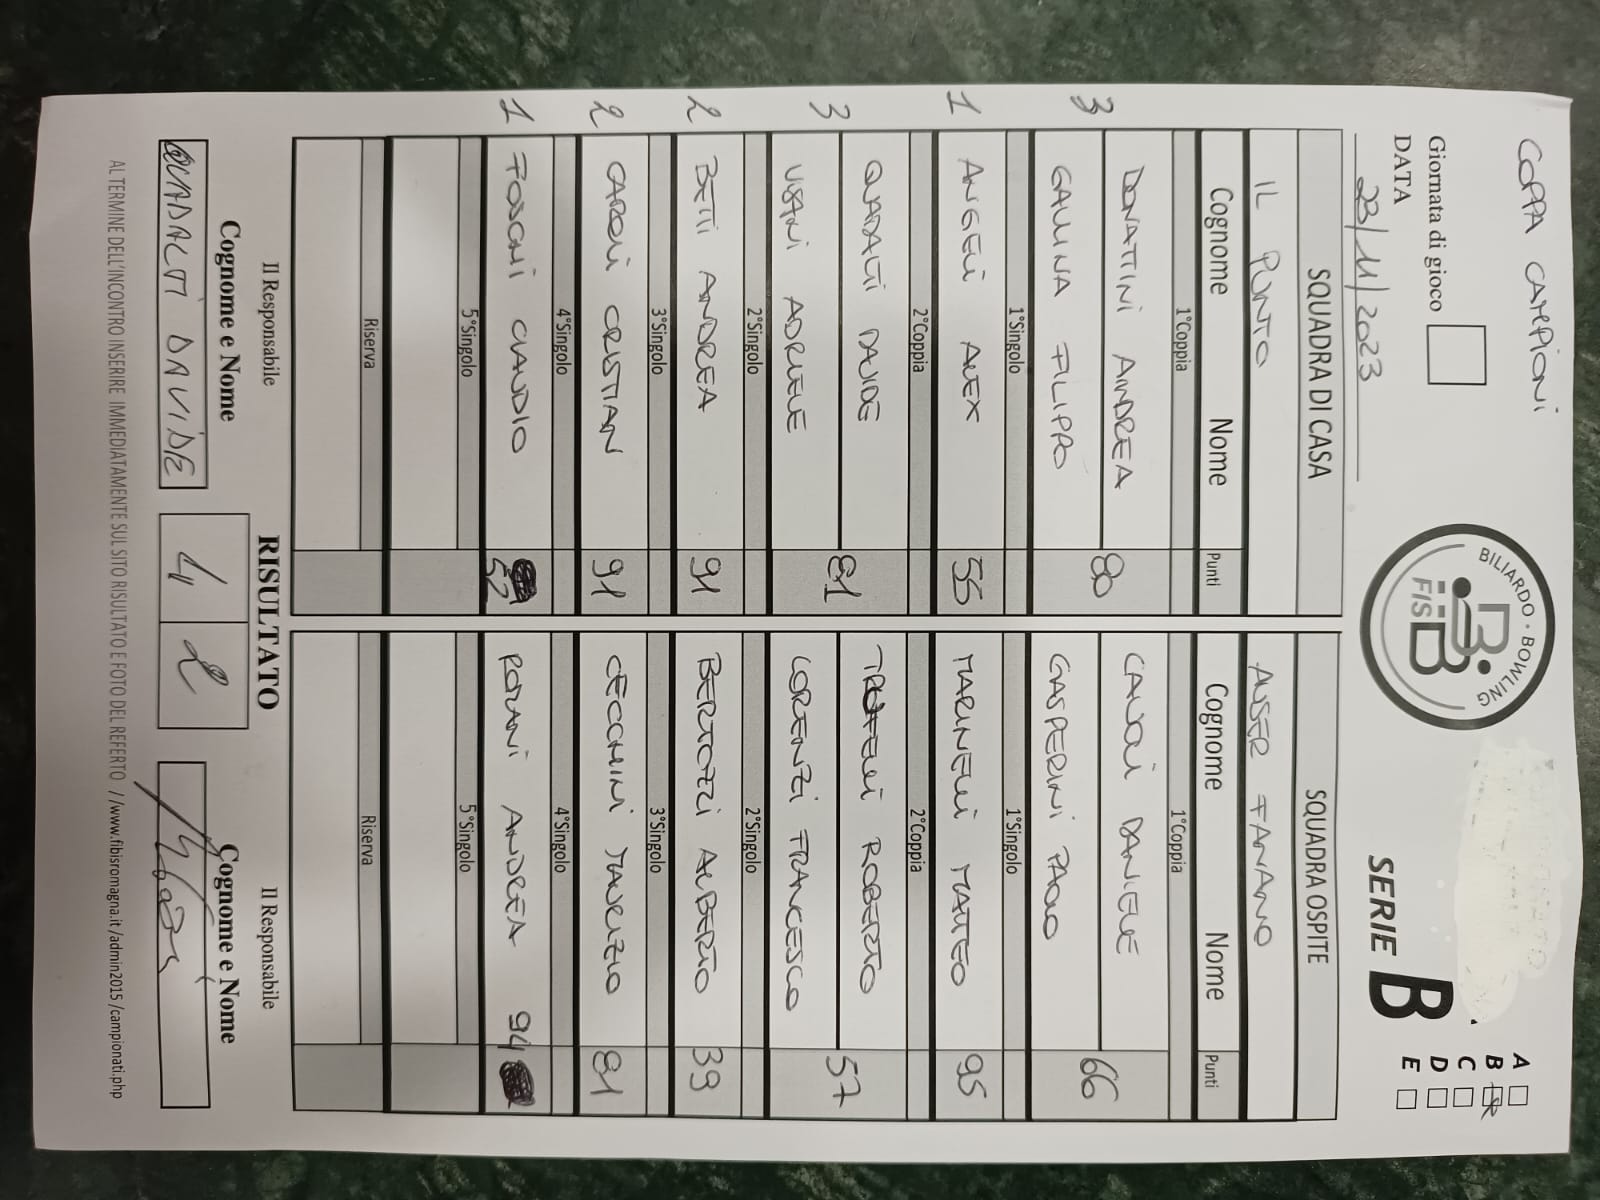 COPPA CAMPIONI
Giornata di gioco
DATA
23/11/2023
BILIARDO • BOWLING
FISBB
SERIE B
A
B
C
D
E
SQUADRA DI CASA SQUADRA OSPITE
IL PUNTO AUSER FANANO
Cognome Nome Punti Cognome Nome Punti
1°Coppia 1°Coppia
3 DONATTINI ANDREA 80 CAVOLI DANIELE 66
GALLINA FILIPPO GASPERINI PAOLO
1°Singolo 1°Singolo
1 ANGELI ALEX 55 MARINELLI MATTEO 95
2°Coppia 2°Coppia
3 QUADALTI DAVIDE 81 ROBERTO 57
VISANI ADRIELE LORENZI FRANCESCO
2°Singolo 2°Singolo
2 BETTI ANDREA 91 BERTOZZI ALBERTO 39
3°Singolo 3°Singolo
2 CAROLI CRISTIAN 91 CECCHINI MAURIZIO 81
4°Singolo 4°Singolo
1 FOSCHI CLAUDIO 52 ROMANI ANDREA 94
5°Singolo 5°Singolo
Riserva Riserva
Il Responsabile RISULTATO Il Responsabile
Cognome e Nome Cognome e Nome
QUADALTI DAVIDE 4 2
AL TERMINE DELL'INCONTRO INSERIRE IMMEDIATAMENTE SUL SITO RISULTATO E FOTO DEL REFERTO //www.fibisromagna.it/admin2015/campionati.php